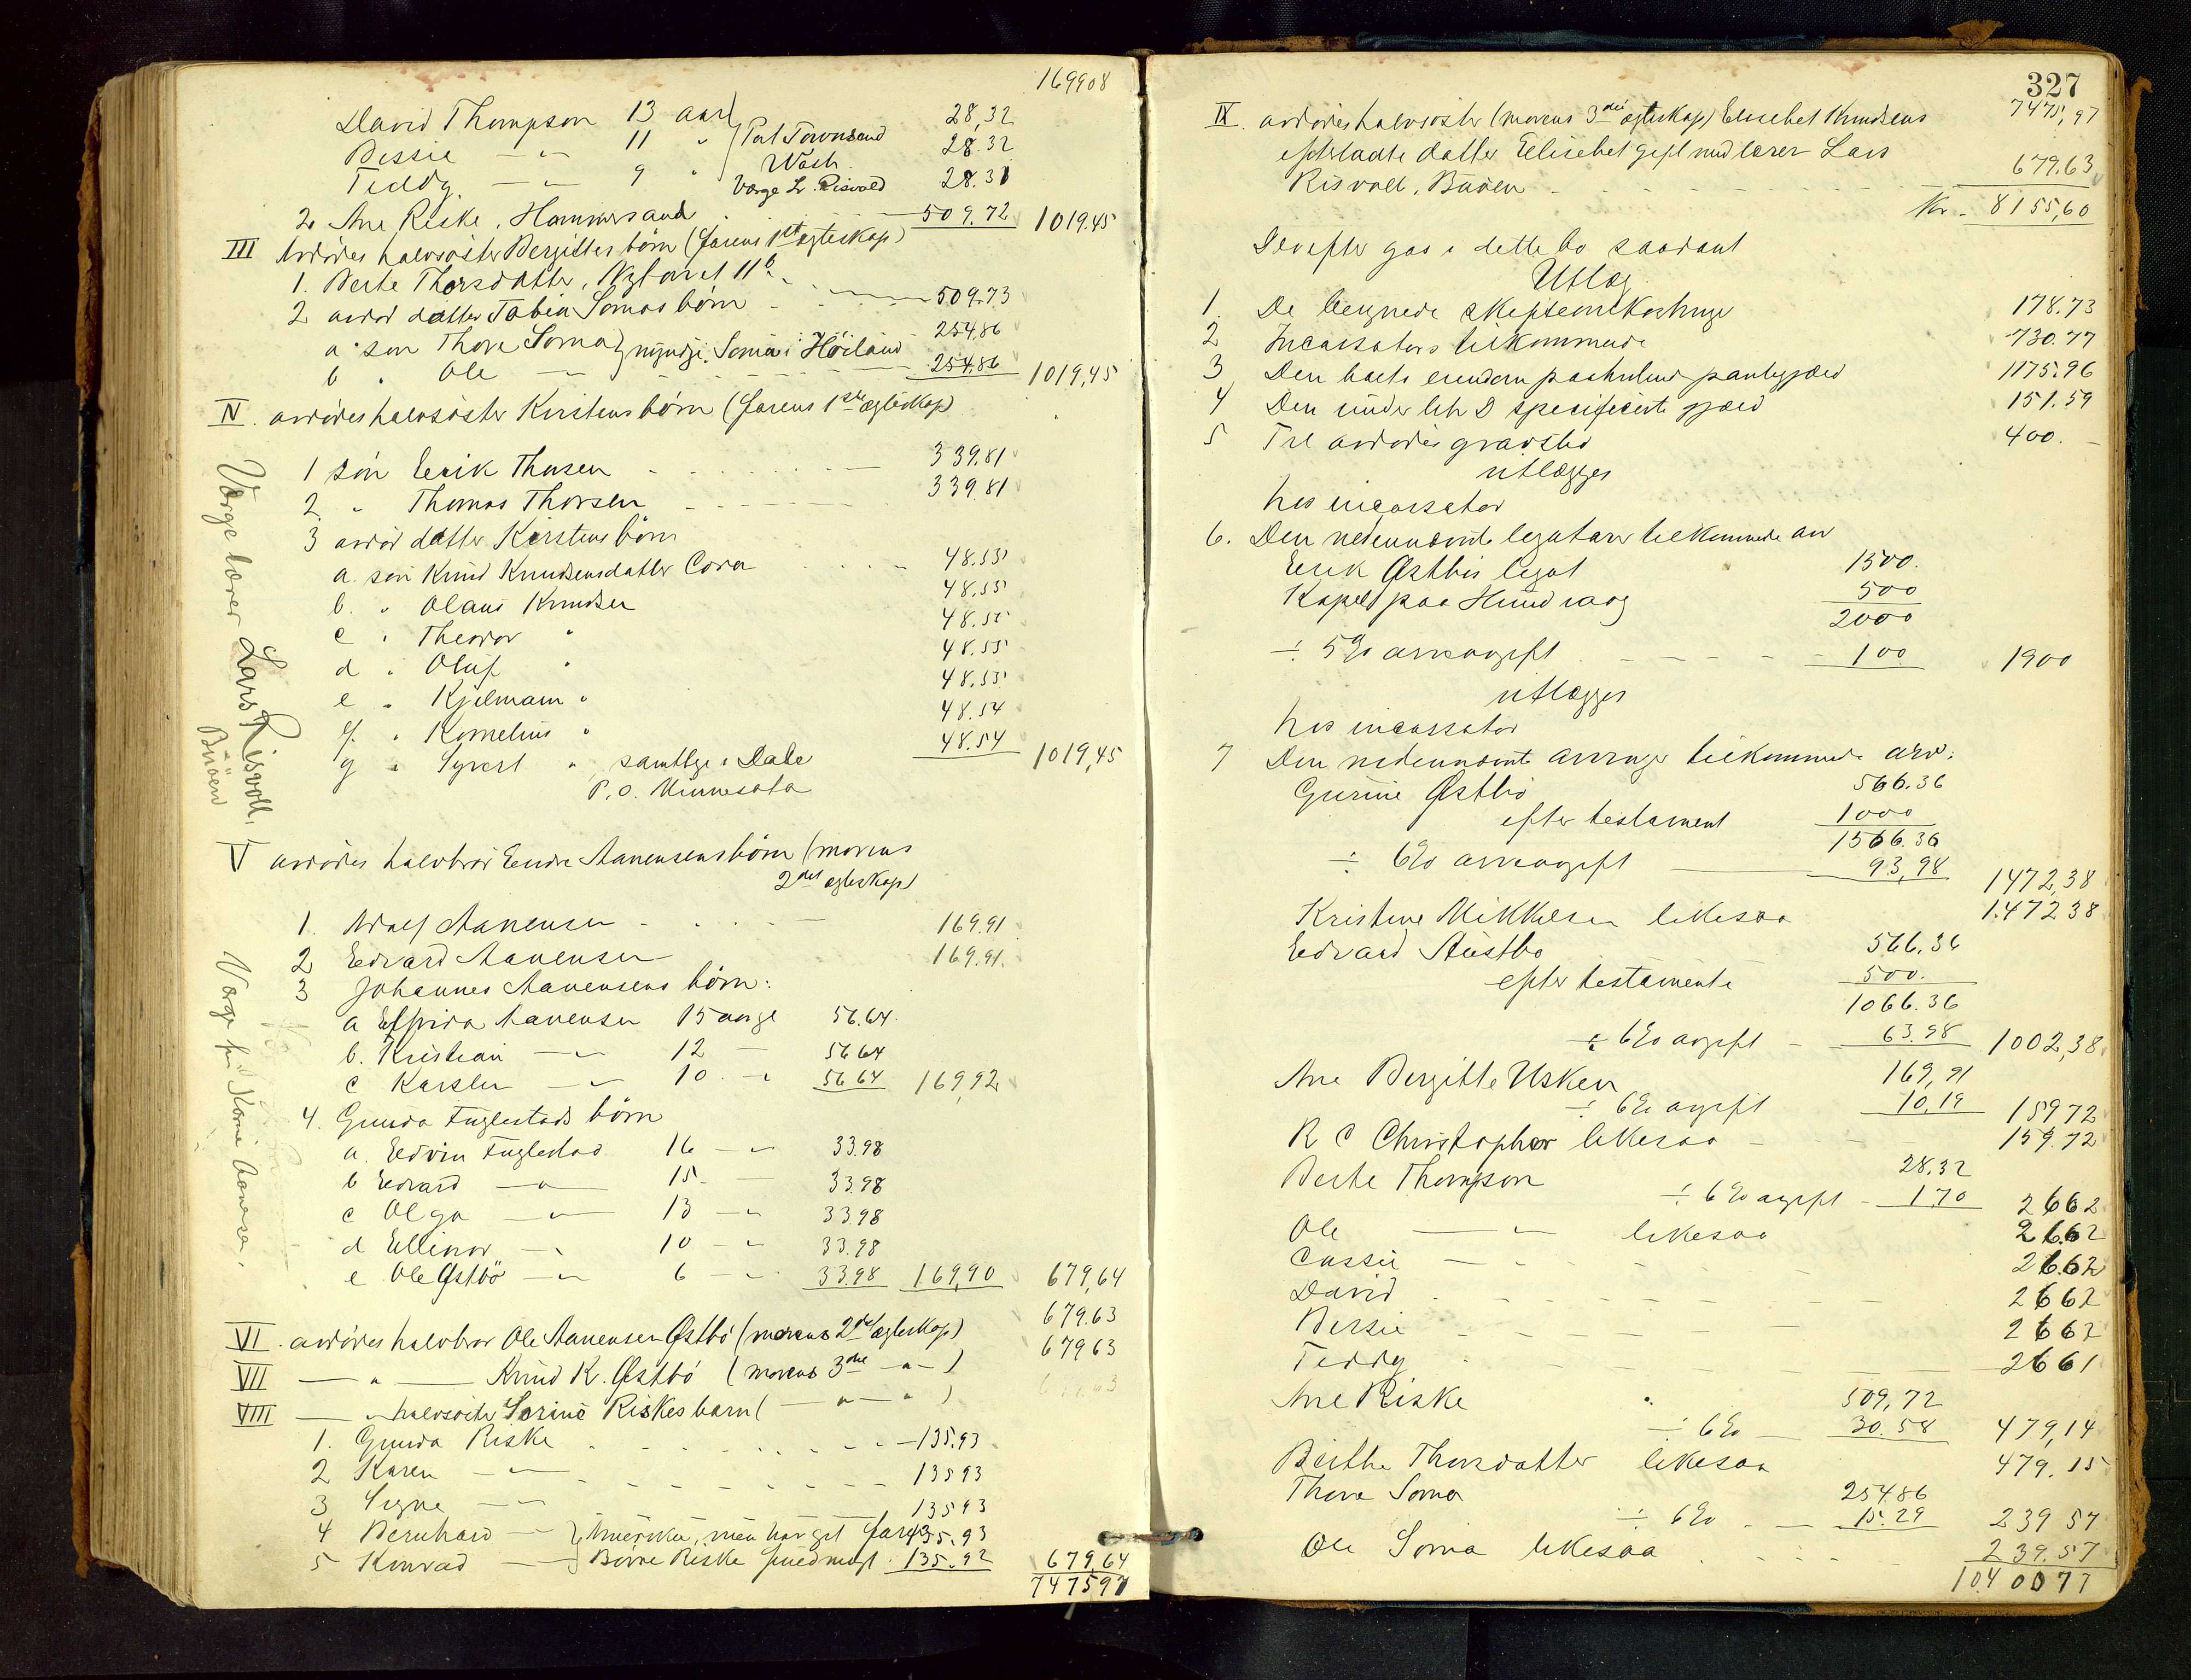 169908
David Thompson 13 aar } 28,32
Bessie —"— 11 " } Port Townsand 28.32
Teddy —"— 9 " Wash. Værge Lr. Risvold 28.31
2 Ane Riske, Hammersand 509.72 1019.45
III Avdødes halvsøster Bergittes børn (farens 1ste egteskap)
1. Berte Thorsdatter, Nyloret 11b 509.73
2 avdød datter Tobia Somas børn
a søn Thore Soma } myndge. Soma i Höiland 254.86
b " Ole —"— 254.86 1019,45
IV. avdødes halvsøster Kirstens børn (farens 1ste egteskap)
1 søn Eerik Thorsen 339.81
2. " Thomas Thorsen 339.81
3 avdød datter Kirstens børn
a. søn Knud Knudsens datter Cora 48.55
b. " Olaus Knudsen 48.55
c " Theodor " 48.55
d " Oluf " 48.55
e " Kjelmann " 48.55
f. " Kornelius " 48.54
g " Syvert " samtlige i Dale 48.54 1019,45
P.O. Minnesota
Værge lærer Lars Risvoll, Buöen
V avdødes halvbror Endre Aanensens børn (morens
2det egteskap)
1. Adolf Aanensen 169.91
2 Edvard Aanensen 169.91
3 Johannes Aanensens børn:
a Elfrida Aanensen 15 aarge 56.64
b. Kristian —"— 12 — 56 64
c Karsten —"— 10 — " 56 64 169,92
4. Gunda Fuglestads børn
a. Edvin Fuglestad 16 —"— 33.98
b Edvard —"— 15. — 33.98
c Olga —"— 13 —"— 33.98
d Ellinor —"— 10 —"— 33.98
e Ole Østbö —"— 6 —"— 33.98 169,90 679,64
Værge fru Korne Aanesen.
VI. avdødes halvbror Ole Aanensen Østbö (morens 2det egteskap) 679.63
VII —"— Knud K. Østbö (morens 3die —"—) 67963
VIII —"— halvsøster Serine Riskes barn (—"—"—)
1. Gunda Riske 135.93
2 Karen —"— 135 93
3 Signe —"— 135 93
4 Bernhard —"— } Amerika, men har git faren 135.93
5 Konrad —"— } Börre Riske fuldmagt 135.92 679,64
747597
327
7475,97
IX. avdødes halvsøster (morens 3die egteskap) Elisebet Knudsens
efterladte datter Elisebet gift med lærer Lars
Risvold, Buöen 679.63
Kr. 8155,60
Derefter gas i dette bo saadant
Utlæg
1. De beregnede skifteomkostninger 178.73
2 Incassators tilkommende 730.77
3 Den boets eiendom paahvilende pantegjæld 1175.96
4 Den under litr D specificerte gjæld 151.59
5 Til avdødes gravsted 400. -
utlægges
hos incassator
6. Den nedennævnte legatarer tilkommende arv
Erik Østbös legat 1500.
Kapelet paa Hundvaag 500
2000
÷ 5% arveavgift 100 1900
utlægges
hos incassator
7 Den nedennævnte arvinger tilkommende arv:
Gurine Østbö 566.36
efter testament 1000
1566.36
÷ 6% arveavgift 93,98 1472,38
Kristine Mikkelsen likesaa 1.472 38
Edvard Austbo 566.36
efter testamente 500.
1066.36
÷ 6% avgift 63.98 1002,38
Ane Bergitte Usken 169,91
÷ 6% avgift 10,19 159 72
R C Christopher likesaa 159.72
Berte Thompson 28.32
÷ 6% avgift 1,70 26 62
Ole —"— likesaa 26.62
Cassie 26.62
David 26 62
Bessie 26 62
Teddy 26 61
Ane Riske 509,72
÷ 6% 30.58 479,14
Berthe Thorsdatter likesaa 479.15
Thore Soma 254.86
÷ 6% 15.29 239 57
Ole Soma likesaa 239.57
10.40077